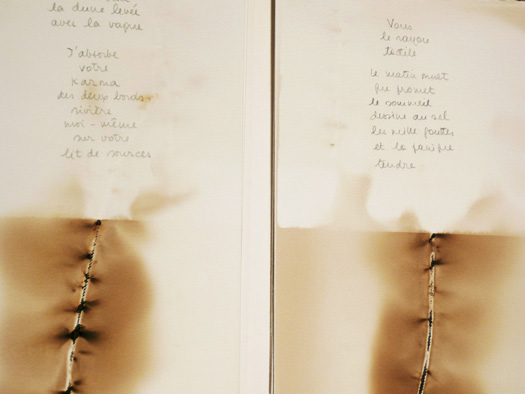 la dune levée
avec la vague
J'absorbe
votre
karma
des deux bords
rivière
moi-même
sur votre
lit de sources
Vous
le rayon
tactile
le matin muet
qui promet
le sommeil
dessine au sel
les mille gouttes
et la
tendre